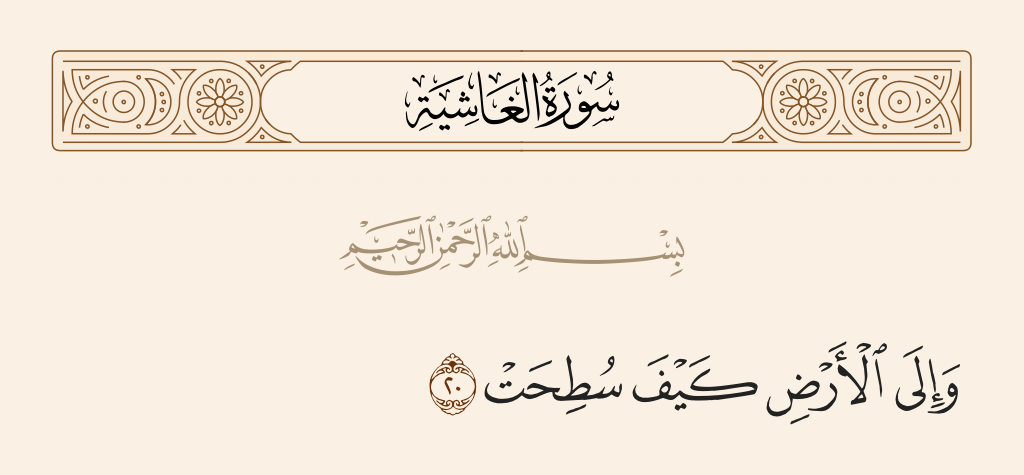 سُورَةُ الغَاشِيَةِ
بِسْمِ ٱللَّهِ ٱلرَّحْمَٰنِ ٱلرَّحِيمِ
وَإِلَى ٱلْأَرْضِ كَيْفَ سُطِحَتْ ٢٠